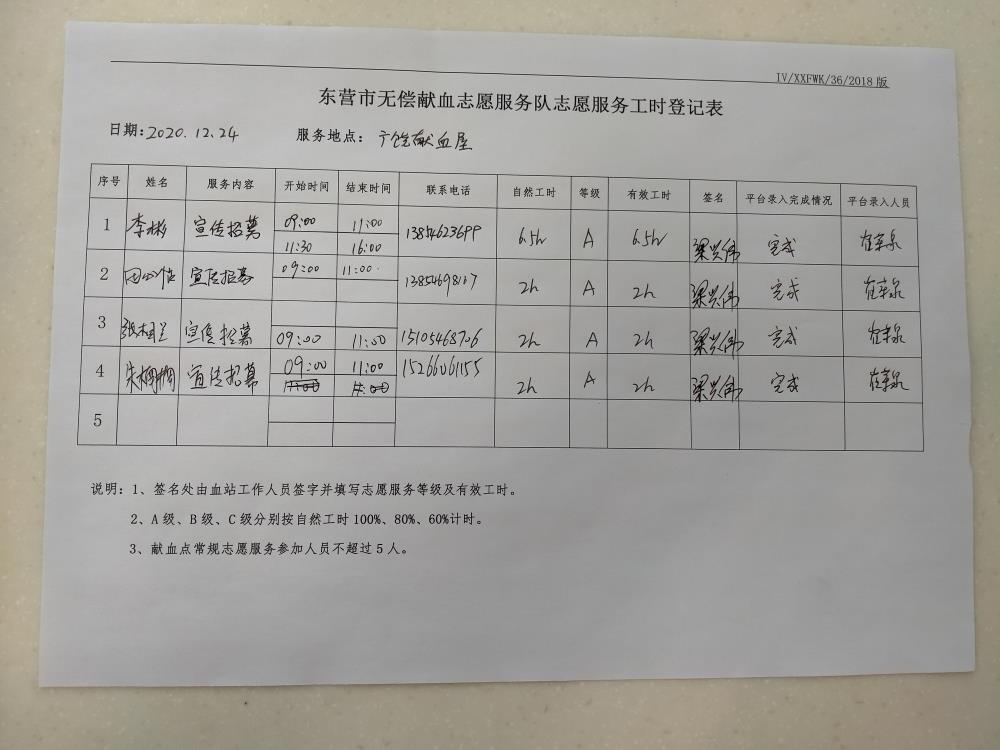 IV/XXFWK/36/2018 版
东营市无偿献血志愿服务队志愿服务工时登记表
日期: 2020.12.24 服务地点: 广饶献血屋
序号 姓名 服务内容 开始时间 结束时间 联系电话 自然工时 等级 有效工时 签名 平台录入完成情况 平台录入人员
1 李彬 宣传招募 09:00 11:00 13854623699 6.5h A 6.5h 梁兴伟 完成
11:30 16:00
2 宣传招募 09:00 11:00 2h A 2h 梁兴伟 完成
3 宣传招募 09:00 11:00 15105468706 2h A 2h 梁兴伟 完成
4 朱栩栩 宣传招募 09:00 11:00 15266061155 2h A 2h 梁兴伟 完成
5
说明: 1、签名处由血站工作人员签字并填写志愿服务等级及有效工时。
2、A 级、B 级、C 级分别按自然工时 100%、80%、60%计时。
3、献血点常规志愿服务参加人员不超过 5 人。